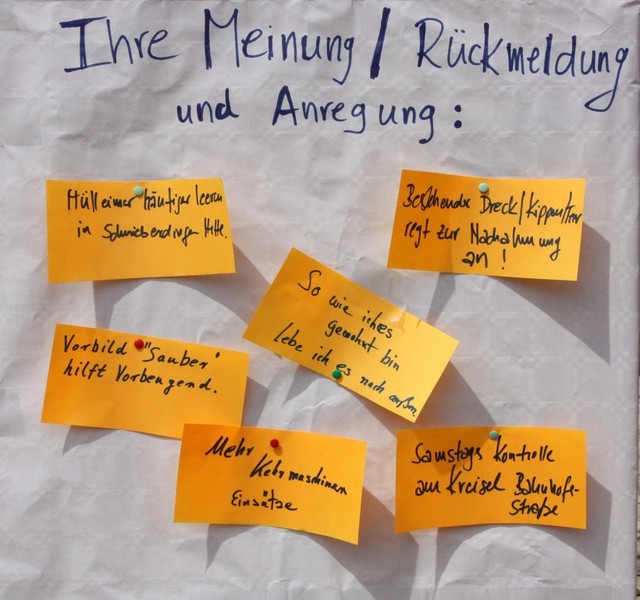 Ihre Meinung / Rückmeldung
und Anregung:
Mülleimer häufiger leeren
in Schwieberdingen Mitte.
Bestehender Dreck/Kippen/
regt zur Nachahmung
an!
So wie ich es
gewohnt bin
lebe ich es nach außen.
Vorbild "Sauber"
hilft Vorbeugend.
Mehr
Kehrmaschinen
Einsätze
Samstags Kontrolle
am Kreisel Bahnhof-
straße